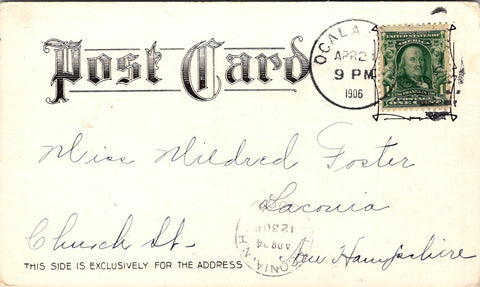 Post Card
OCALA
APR 2
9 PM
1906
UNITED STATES OF AMERICA
POSTAGE
ONE CENT
Miss Mildred Foster
Laconia
Church St.
New Hampshire
ONIA, N.H.
APR 24
1230P
THIS SIDE IS EXCLUSIVELY FOR THE ADDRESS